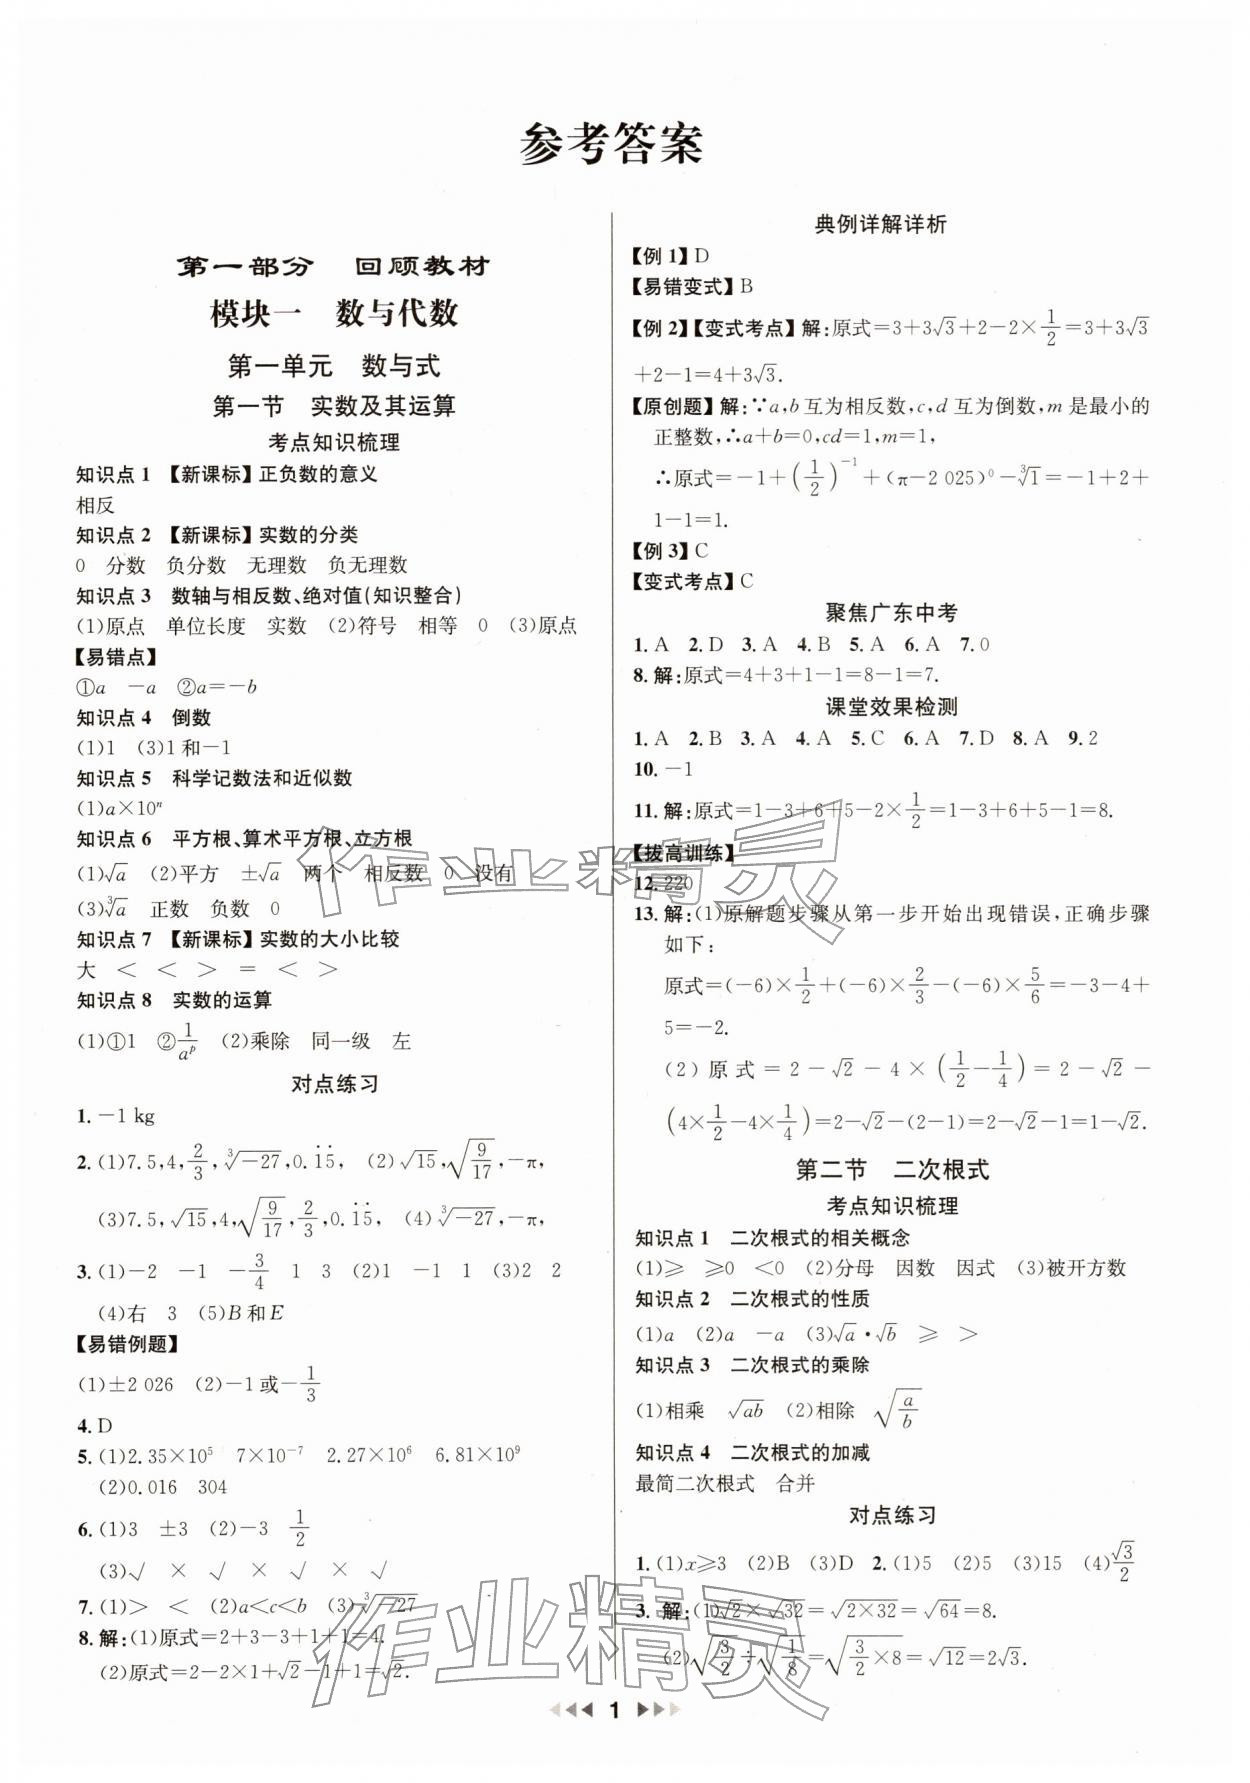 参考答案
第一部分　回顾教材
模块一　数与代数
第一单元　数与式
第一节　实数及其运算
考点知识梳理
知识点 1　【新课标】正负数的意义
相反
知识点 2　【新课标】实数的分类
0　分数　负分数　无理数　负无理数
知识点 3　数轴与相反数、绝对值(知识整合)
(1)原点　单位长度　实数　(2)符号　相等　0　(3)原点
【易错点】
①a　-a　②a=-b
知识点 4　倒数
(1)1　(3)1 和-1
知识点 5　科学记数法和近似数
(1)a×10ⁿ
知识点 6　平方根、算术平方根、立方根
(1)√a　(2)平方　±√a　两个　相反数　0　没有
(3)∛a　正数　负数　0
知识点 7　【新课标】实数的大小比较
大　<　<　>　=　<　>
知识点 8　实数的运算
(1)①1　②1/aᵖ　(2)乘除　同一级　左
对点练习
1. -1 kg
2. (1)7.5,4,2/3,∛-27,0.1̇5̇,　(2)√15,√(9/17),-π,
(3)7.5,√15,4,√(9/17),2/3,0.1̇5̇,　(4)∛-27,-π,
3. (1)-2　-1　-3/4　1　3　(2)1　-1　1　(3)2　2
(4)右　3　(5)B 和 E
【易错例题】
(1)±2 026　(2)-1 或-1/3
4. D
5. (1)2.35×10⁵　7×10⁻⁷　2.27×10⁶　6.81×10⁹
(2)0.016　304
6. (1)3　±3　(2)-3　1/2
(3)√　×　√　×　×　√
7. (1)>　<　(2)a<c<b　(3)∛-27
8. 解:(1)原式=2+3-3+1+1=4.
(2)原式=2-2×1+√2-1+1=√2.
典例详解详析
【例 1】D
【易错变式】B
【例 2】【变式考点】解:原式=3+3√3+2-2×1/2=3+3√3
+2-1=4+3√3.
【原创题】解:∵a,b 互为相反数,c,d 互为倒数,m 是最小的
正整数,∴a+b=0,cd=1,m=1,
∴原式=-1+(1/2)⁻¹+(π-2 025)⁰-∛1=-1+2+
1-1=1.
【例 3】C
【变式考点】C
聚焦广东中考
1. A　2. D　3. A　4. B　5. A　6. A　7. 0
8. 解:原式=4+3+1-1=8-1=7.
课堂效果检测
1. A　2. B　3. A　4. A　5. C　6. A　7. D　8. A　9. 2
10. -1
11. 解:原式=1-3+6+5-2×1/2=1-3+6+5-1=8.
【拔高训练】
12. 220
13. 解:(1)原解题步骤从第一步开始出现错误,正确步骤
如下:
原式=(-6)×1/2+(-6)×2/3-(-6)×5/6=-3-4+
5=-2.
(2)原式=2-√2-4×(1/2-1/4)=2-√2-
(4×1/2-4×1/4)=2-√2-(2-1)=2-√2-1=1-√2.
第二节　二次根式
考点知识梳理
知识点 1　二次根式的相关概念
(1)≥　≥0　<0　(2)分母　因数　因式　(3)被开方数
知识点 2　二次根式的性质
(1)a　(2)a　-a　(3)√a·√b　≥　>
知识点 3　二次根式的乘除
(1)相乘　√ab　(2)相除　√(a/b)
知识点 4　二次根式的加减
最简二次根式　合并
对点练习
1. (1)x≥3　(2)B　(3)D　2. (1)5　(2)5　(3)15　(4)√3/2
3. 解:(1)√2×√32=√2×32=√64=8.
(2)√(3/2)÷√(1/8)=√(3/2×8)=√12=2√3.
作业精灵
作业精灵
1